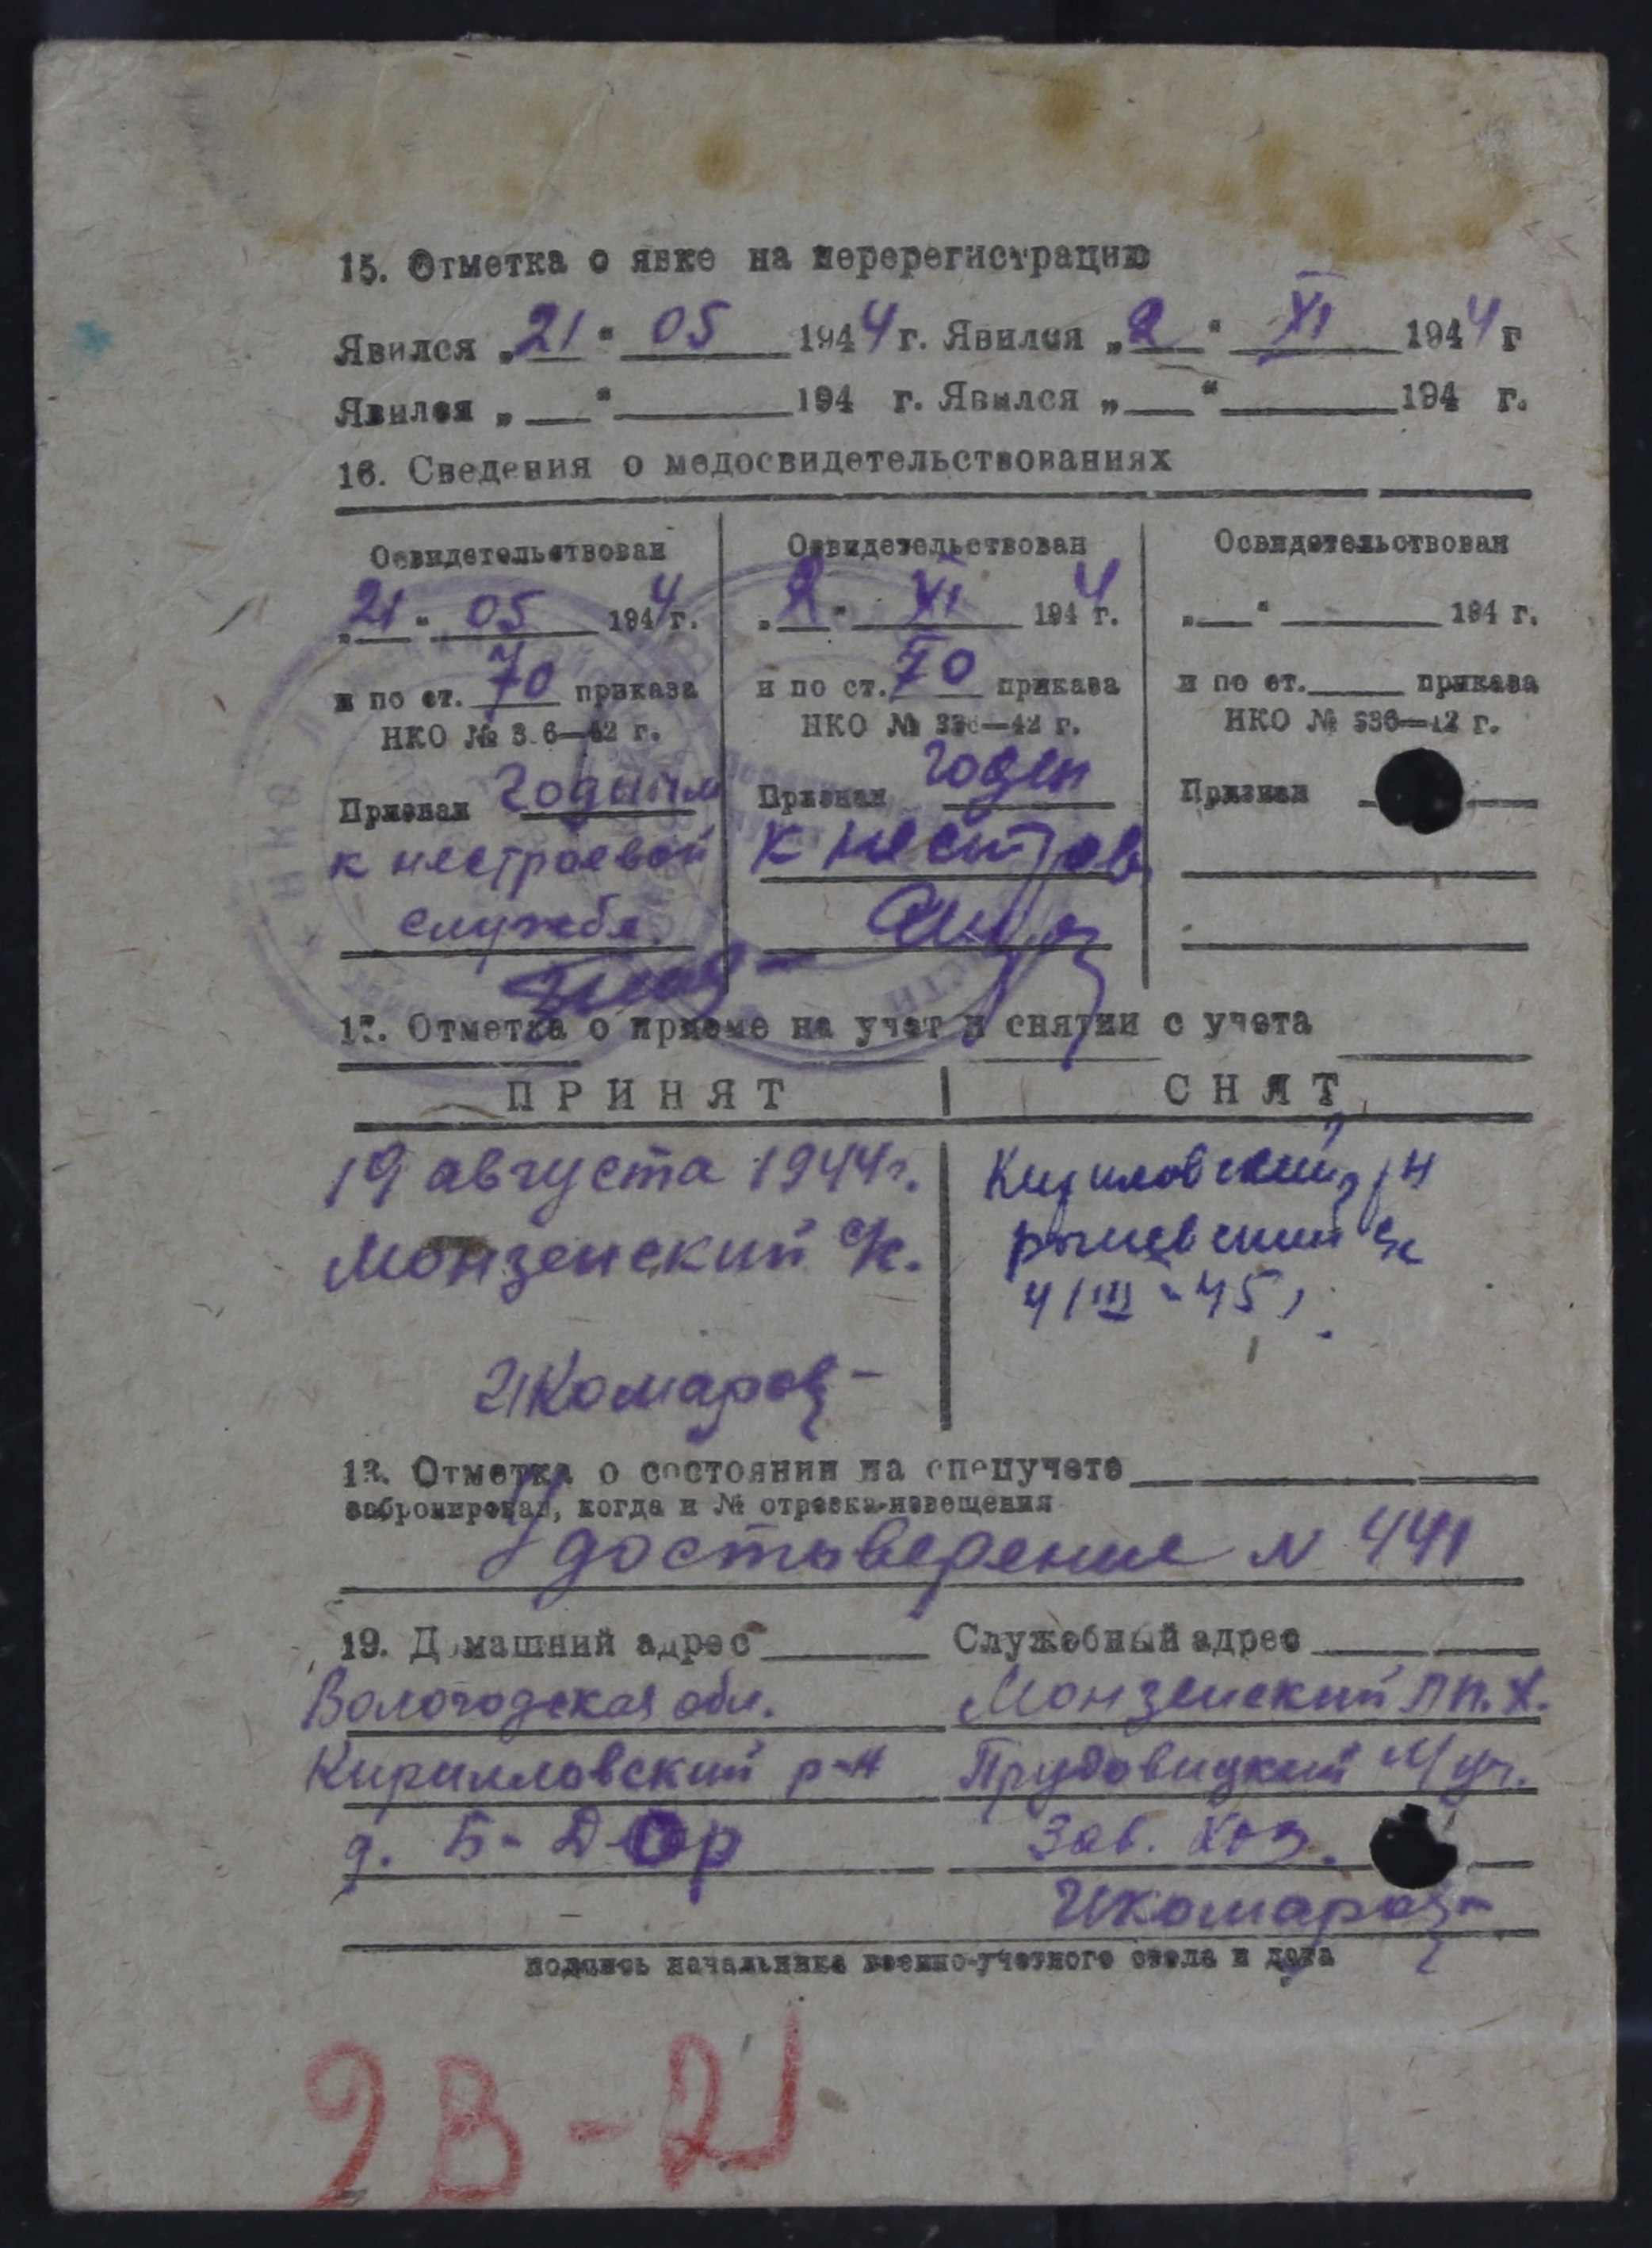 15. Отметка о явке на перерегистрацию
Явился „21“ 05 1944 г. Явился „2“ XI 1944 г
Явился „ “ 194 г. Явился „ “ 194 г.
16. Сведения о медосвидетельствованиях
Освидетельствован
„21“ 05 1944 г.
и по ст. 70 приказа
НКО № 3 6—42 г.
Признан Годным
к нестроевой
службе.
Освидетельствован
„2“ XI 1944 г.
и по ст. 70 приказа
НКО № 336—42 г.
Признан годен
к нестроев
Освидетельствован
„ “ 194 г.
и по ст. приказа
НКО № 336—42 г.
Признан
17. Отметка о приеме на учет и снятии с учета
ПРИНЯТ | СНЯТ
19 августа 1944 г.
Монзенский с/с.
ИКомаров
Кириловский р/н
с/с
4/III-45
18. Отметка о состоянии на спецучете
забронирован, когда и № отрезка-извещения
Удостоверение N 441
19. Домашний адрес
Вологодская обл.
Кирилловский р-н
д. Б-Дор
Служебный адрес
Монзенский ЛП.Х.
Прудовицкий М/уч.
Зав. Хоз.
ИКомаров
подпись начальника военно-учетного стола и дата
2В-21
НКО